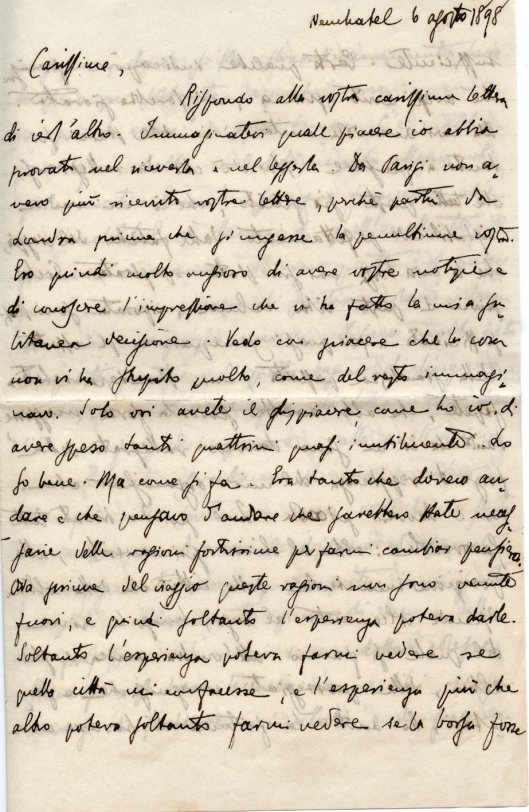 Neuchatel 6 agosto 1898
Carissime,
Rispondo alla vostra carissima lettera
di ier l'altro. Immaginatevi quale piacere io abbia
provato nel riceverla e nel leggerla. Da Parigi non a-
vevo più ricevuto vostre lettere, perchè partii da
Londra prima che giungesse la penultima vostra.
Ero quindi molto ansioso di avere vostre notizie e
di conoscere l'impressione che vi ha fatto la mia su-
bitanea decisione. Vedo con piacere che la cosa
non vi ha stupito molto, come del resto immagi-
navo. Solo voi avete il dispiacere come ho io, di
avere speso tanti quattrini quasi inutilmente. Lo
so bene. Ma come si fa. Era tanto che dovevo an-
dare e che pensavo d'andare che sarebbero state neces-
sarie delle ragioni fortissime per farmi cambiar pensiero.
Ora prima del viaggio queste ragioni non sono venute
fuori, e quindi soltanto l'esperienza poteva darle.
Soltanto l'esperienza poteva farmi vedere se
quella città mi confacesse, e l'esperienza più che
altro poteva soltanto farmi vedere se la borsa fosse